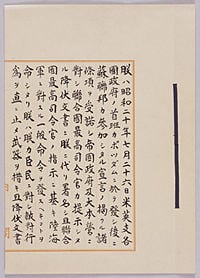 朕ハ昭和二十年七月二十六日米英支各
國政府ノ首班カポツダムニ於テ發シ後ニ
蘇聯邦カ參加シタル宣言ノ掲クル諸
條項ヲ受諾シ帝國政府及大本營ニ
對シ聯合國最高司令官カ提示シタ
ル降伏文書ニ朕ニ代リ署名シ且聯合
國最高司令官ノ指示ニ基キ陸海
軍ニ對スル一般命令ヲ發スヘキコトヲ
命シタリ朕ハ朕カ臣民ニ對シ敵對行
爲ヲ直ニ止メ武器ヲ措キ且降伏文書